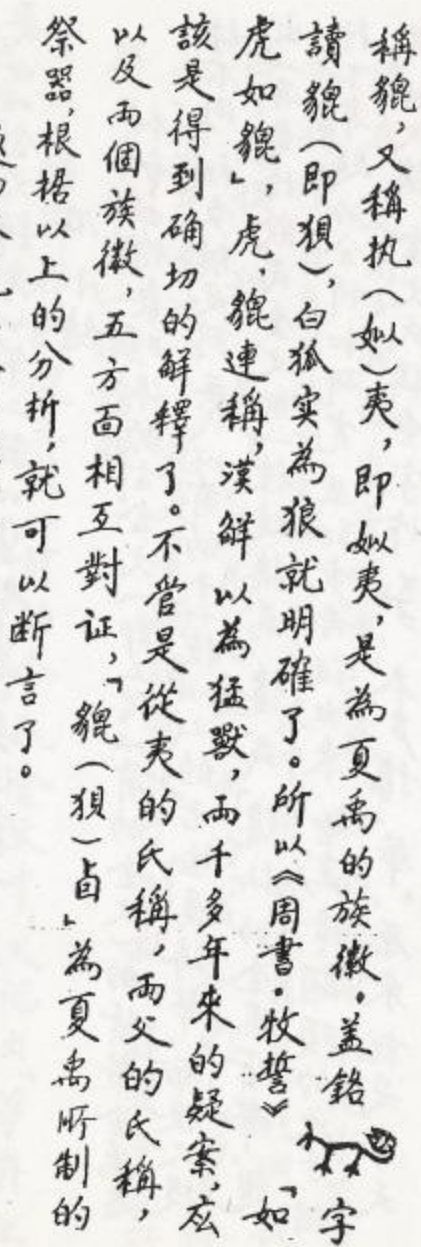 稱貔，又稱执（姒）夷，即姒夷，是為夏禹的族徽。盖銘字
讀貔（即狽），白狐实為狼就明確了。所以《周書·牧誓》「如
虎如貔」，虎、貔連稱，漢解以為猛獸，兩千多年來的疑案，应
該是得到确切的解釋了。不管是從夷的氏稱，兩父的氏稱，
以及两個族徽，五方面相互對证，「貔（狽）卣」為夏禹所制的
祭器，根据以上的分析，就可以断言了。